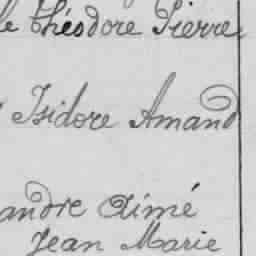 le Théodore Pierre
Isidore Amand
andre Aimé
Jean Marie